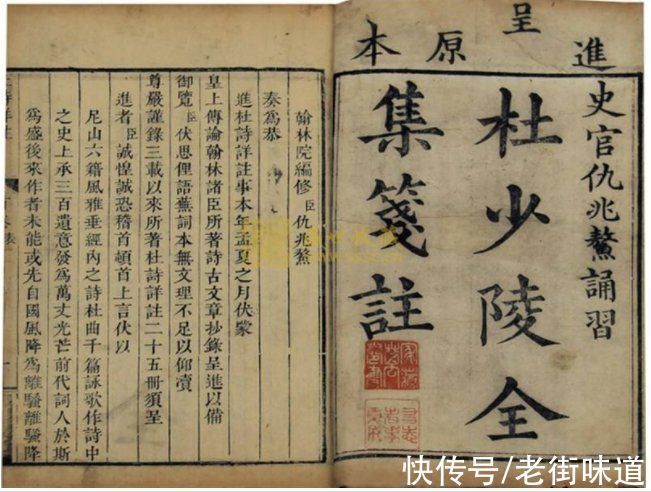 進呈原本
史官仇兆鰲誦習
杜少陵全
集箋註
翰林院編修臣仇兆鰲
奏爲恭
進杜詩詳註事本年孟夏之月伏蒙
皇上傳諭翰林諸臣所著詩古文章抄錄呈進以備
御覽臣伏思俚語蕪詞本無文理不足以仰瀆
尊嚴謹錄三載以來所著杜詩詳註二十五冊須呈
進者臣誠惶誠恐稽首頓首上言伏以
尼山六籍風雅垂經內之詩杜曲千篇詠歌作詩中
之史上承三百遺意發爲萬丈光芒前代詞人於斯
爲盛後來作者未能或先自國風降爲離騷離騷降
快传号/老街味道